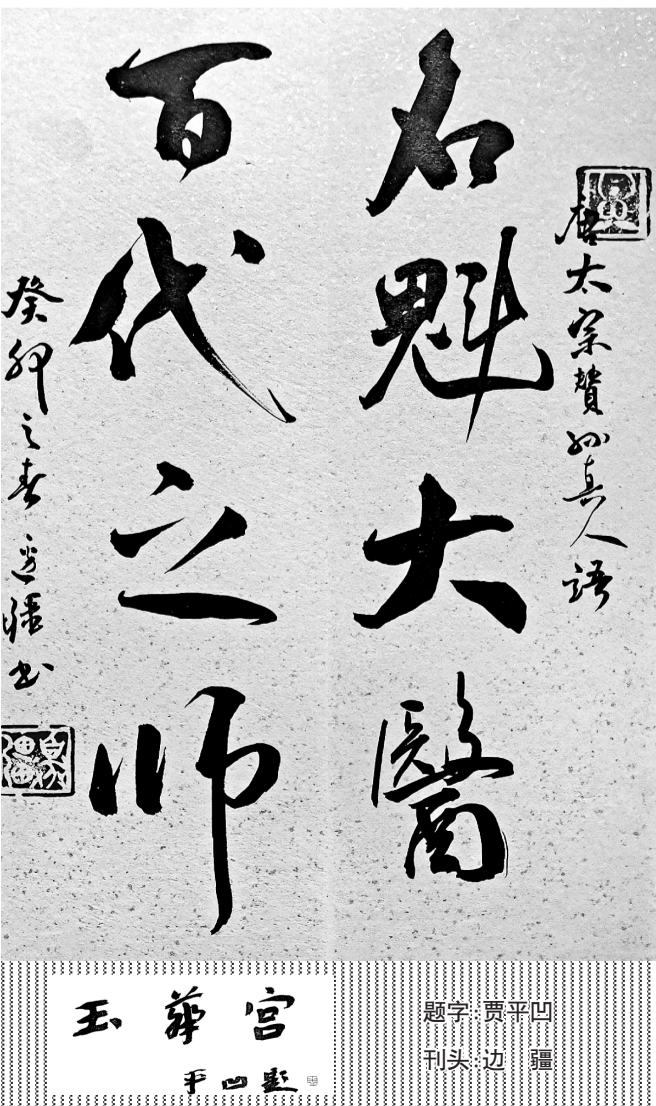 唐太宗賛孙真人語
名魁大醫
百代之师
癸卯之春邊疆书
玉華宫
平凹题
题字:贾平凹
刊头:边 疆